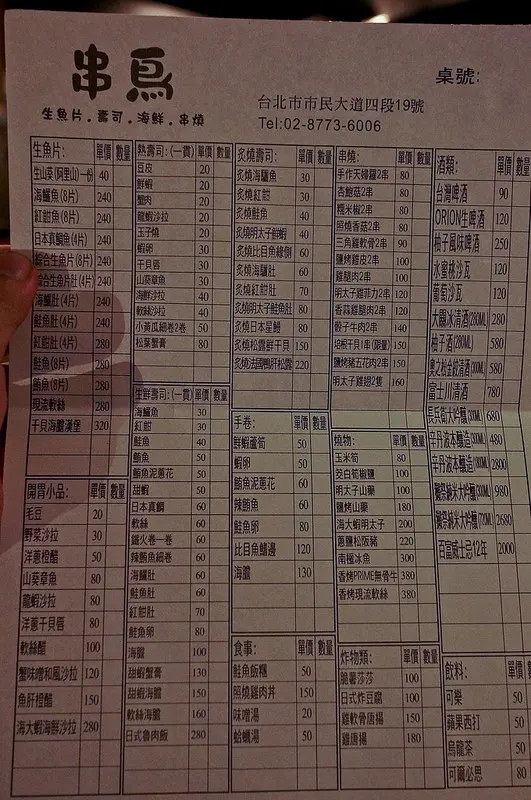 串鳥
生魚片．壽司．海鮮．串燒
桌號:
台北市市民大道四段19號
Tel:02-8773-6006
生魚片: 單價 數量
生山葵(阿里山)一份 40
海鱺魚(8片) 240
紅魽魚(8片) 240
日本真鯛魚(4片) 240
綜合生魚片(8片) 240
綜合生魚片肚(4片) 240
海鱺肚(4片) 240
鮭魚肚(4片) 240
紅魽肚(4片) 280
鮭魚(8片) 280
鮪魚(8片) 280
現流軟絲 280
干貝海膽漢堡 320
開胃小品: 單價 數量
毛豆 20
野菜沙拉 30
洋蔥橙醋 50
山葵章魚 80
龍蝦沙拉 80
洋蔥干貝唇 80
軟絲醋 100
蟹味噌和風沙拉 120
魚肝橙醋 150
海大蝦海鮮沙拉 280
熟壽司:(一貫) 單價 數量
豆皮 20
鮮蝦 20
蟹肉 20
龍蝦沙拉 20
玉子燒 20
蝦卵 30
干貝唇 30
山葵章魚 30
海鮮沙拉 40
軟絲沙拉 40
小黃瓜細卷2卷 50
松葉蟹膏 80
生鮮壽司:(一貫) 單價 數量
海鱺魚 30
紅魽 30
鮭魚 40
鮪魚 50
鮪魚泥蔥花 50
甜蝦 50
日本真鯛 60
軟絲 60
鐵火卷一卷 60
辣鮪魚細卷 60
海鱺肚 60
鮭魚肚 60
紅魽肚 70
鮭魚卵 80
海膽 100
甜蝦蟹膏 130
甜蝦海膽 150
軟絲海膽 160
日式魯肉飯 280
炙燒壽司: 單價 數量
炙燒海鱺魚 30
炙燒紅魽 30
炙燒鮭魚 40
炙燒明太子鮮蝦 40
炙燒比目魚緣側 60
炙燒海鱺肚 60
炙燒紅魽肚 70
炙燒明太子鮭魚肚 80
炙燒日本星鰻 80
炙燒松露鮮干貝 150
炙燒法國鴨肝松露 220
手卷: 單價 數量
鮮蝦蘆筍 50
蝦卵 50
鮪魚泥蔥花 60
辣鮪魚 60
鮭魚卵 80
比目魚鰭邊 120
海膽 130
食事: 單價 數量
鮭魚飯糰 50
照燒雞肉丼 150
味噌湯 20
蛤蠣湯 50
串燒: 單價 數量
手作天婦羅2串 80
杏鮑菇2串 80
糯米椒2串 80
照燒香菇2串 80
三角雞軟骨2串 90
鹽烤雞皮2串 100
雞腿肉2串 100
明太子雞菲力2串 120
香蒜雞腿肉2串 120
骰子牛肉2串 140
培根干貝1串(限量) 150
鹽烤豬五花肉2串 150
明太子雞翅2隻 160
燒物: 單價 數量
玉米筍 80
茭白筍椒鹽 100
明太子山藥 100
鹽烤山藥 180
海大蝦明太子 200
蔥鹽松阪豬 220
南極冰魚 300
香烤PRIME無骨牛 380
香烤現流軟絲 380
炸物類: 單價 數量
脆薯莎莎 100
日式炸豆腐 100
雞軟骨唐揚 150
雞唐揚 180
酒類: 單價 數量
台灣啤酒 90
ORION生啤酒 120
柚子風味啤酒 250
水蜜桃沙瓦 120
葡萄沙瓦 120
大關冰清酒(280ML) 280
柚子酒(280ML) 580
奧之松金紋清酒(300ML) 580
富士川清酒 780
長兵衛大吟釀(300ML) 680
辛丹波本釀造(300ML) 480
辛丹波本釀造 2800
獺祭純米大吟釀(300ML) 980
獺祭純米大吟釀(720ML) 2680
百富威士忌12年 2000
飲料: 單價 數量
可樂 50
蘋果西打 50
烏龍茶 50
可爾必思 80